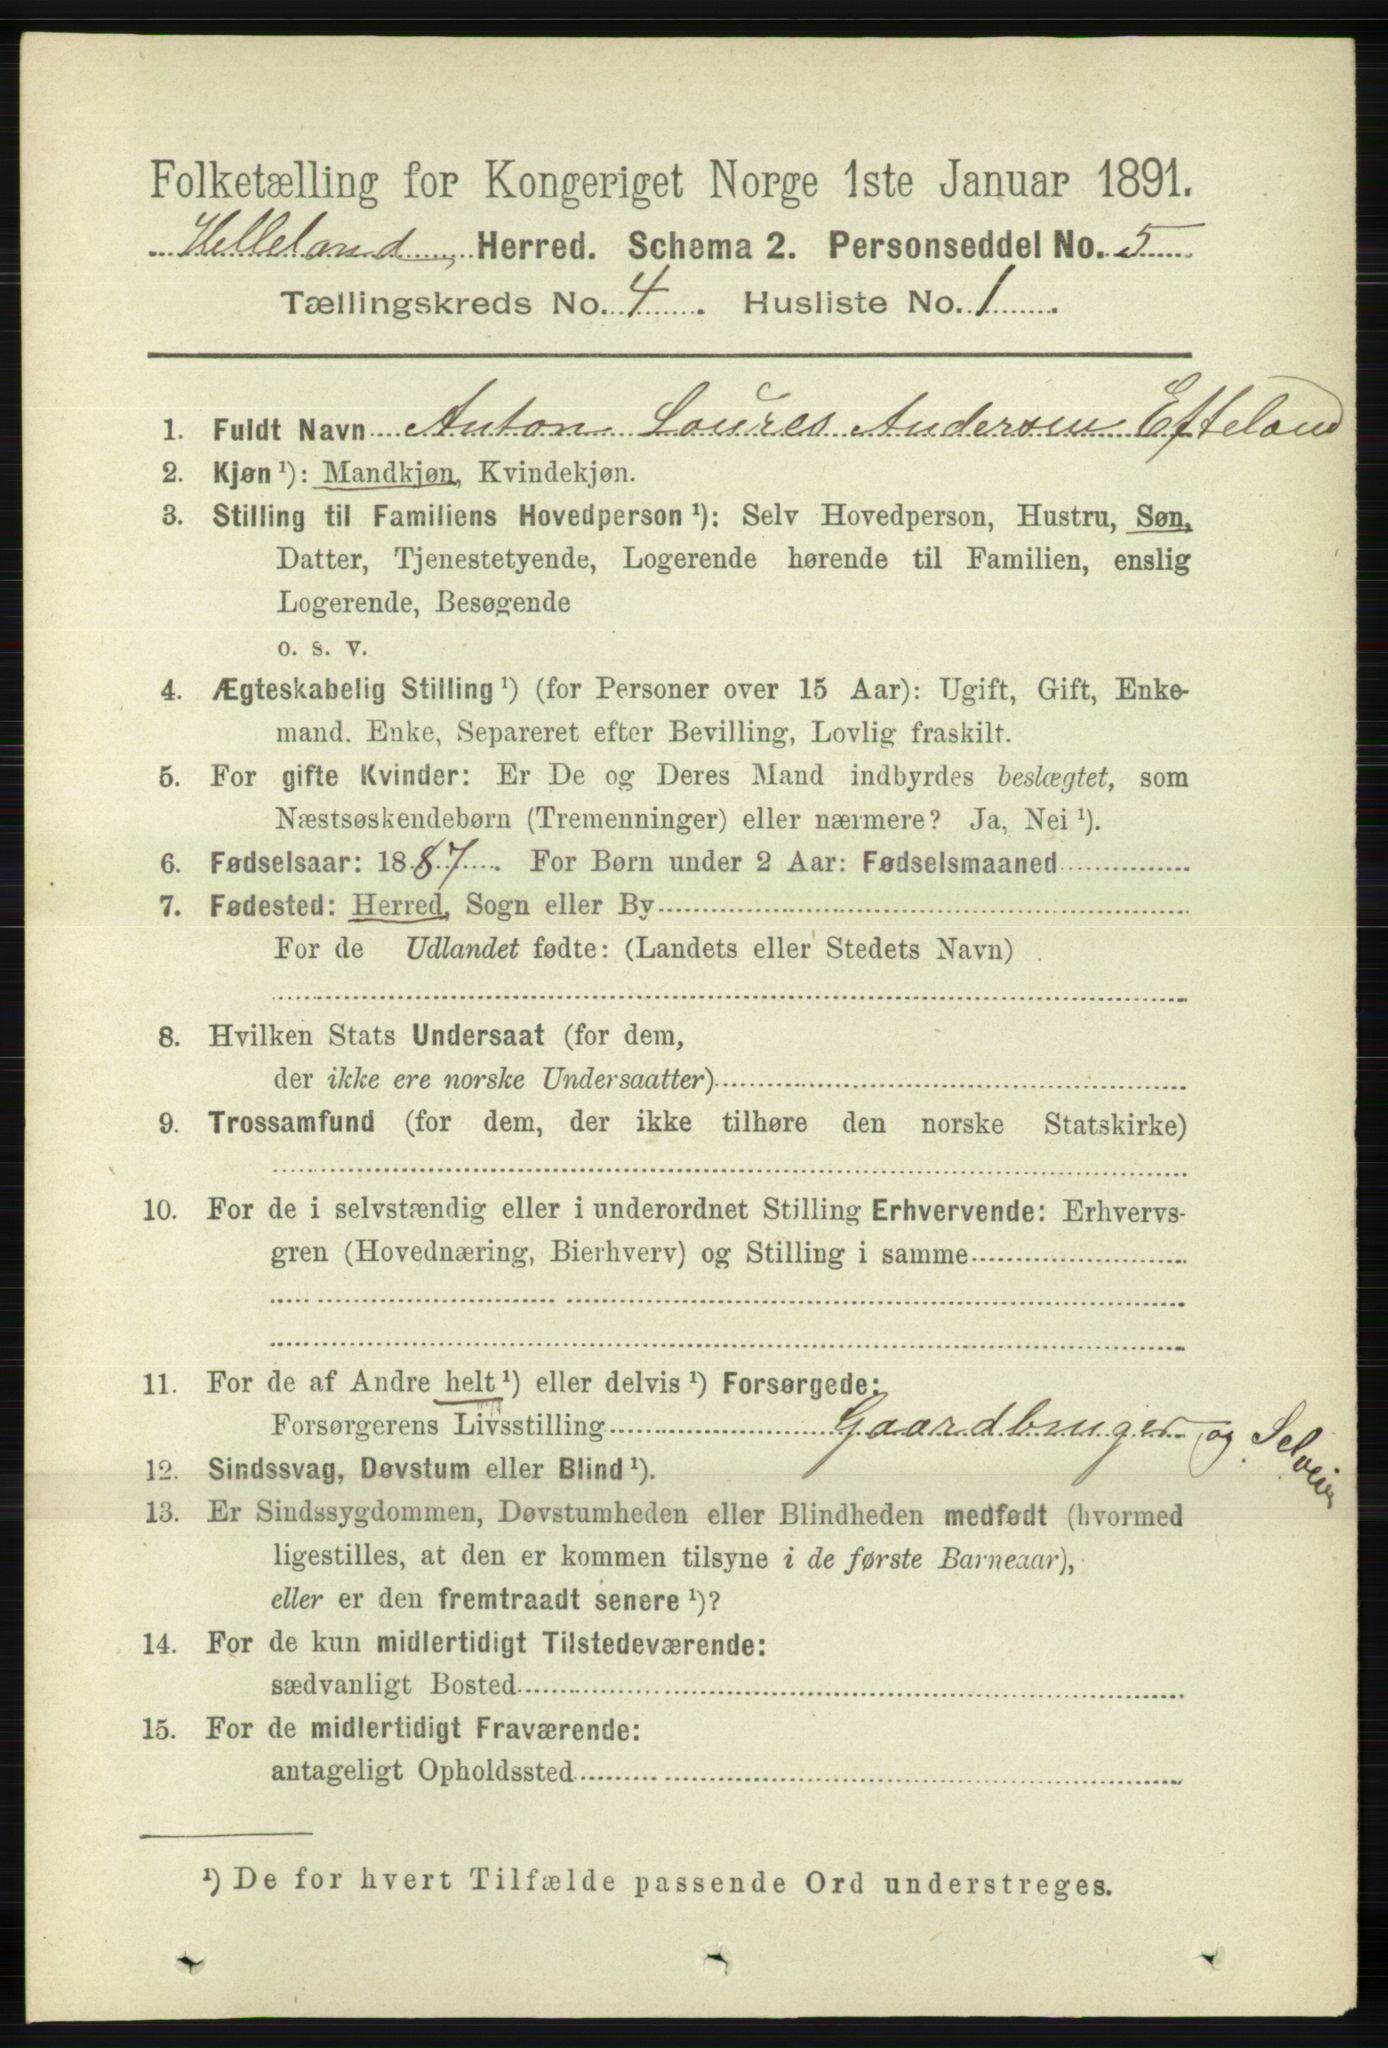 Folketælling for Kongeriget Norge 1ste Januar 1891.
Helleland, Herred. Schema 2. Personseddel No. 5
Tællingskreds No. 4. Husliste No. 1.
1. Fuldt Navn Anton Loures Andersen Efteland
2. Kjøn ¹): Mandkjøn, Kvindekjøn.
3. Stilling til Familiens Hovedperson ¹): Selv Hovedperson, Hustru, Søn,
Datter, Tjenestetyende, Logerende hørende til Familien, enslig
Logerende, Besøgende
o. s. v.
4. Ægteskabelig Stilling ¹) (for Personer over 15 Aar): Ugift, Gift, Enke-
mand. Enke, Separeret efter Bevilling, Lovlig fraskilt.
5. For gifte Kvinder: Er De og Deres Mand indbyrdes beslægtet, som
Næstsøskendebørn (Tremenninger) eller nærmere? Ja, Nei ¹).
6. Fødselsaar: 1887. For Børn under 2 Aar: Fødselsmaaned
7. Fødested: Herred, Sogn eller By
For de Udlandet fødte: (Landets eller Stedets Navn)
8. Hvilken Stats Undersaat (for dem,
der ikke ere norske Undersaatter)
9. Trossamfund (for dem, der ikke tilhøre den norske Statskirke)
10. For de i selvstændig eller i underordnet Stilling Erhvervende: Erhvervs-
gren (Hovednæring, Bierhverv) og Stilling i samme
11. For de af Andre helt ¹) eller delvis ¹) Forsørgede:
Forsørgerens Livsstilling Gaardbruger og Selveier
12. Sindssvag, Døvstum eller Blind ¹).
13. Er Sindssygdommen, Døvstumheden eller Blindheden medfødt (hvormed
ligestilles, at den er kommen tilsyne i de første Barneaar),
eller er den fremtraadt senere ¹)?
14. For de kun midlertidigt Tilstedeværende:
sædvanligt Bosted
15. For de midlertidigt Fraværende:
antageligt Opholdssted
¹) De for hvert Tilfælde passende Ord understreges.